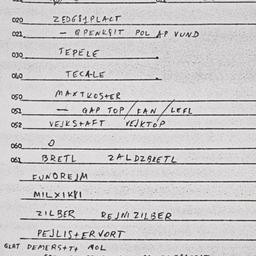 020 ZEDGSIPLACT
021 — OPENKSIT POL AP VUND
030 TEPELE
040 TECALE
050 MAXTKOSTER
051 — GAP TOP / FAN / LEFL
052 VEJKSTAFT VEJKTOP
060 O
061 BRETL ZALDZBRETL
FUNDREJM
MILXIKSI
ZILBER REJNIZILBER
PEJLISTERVORT